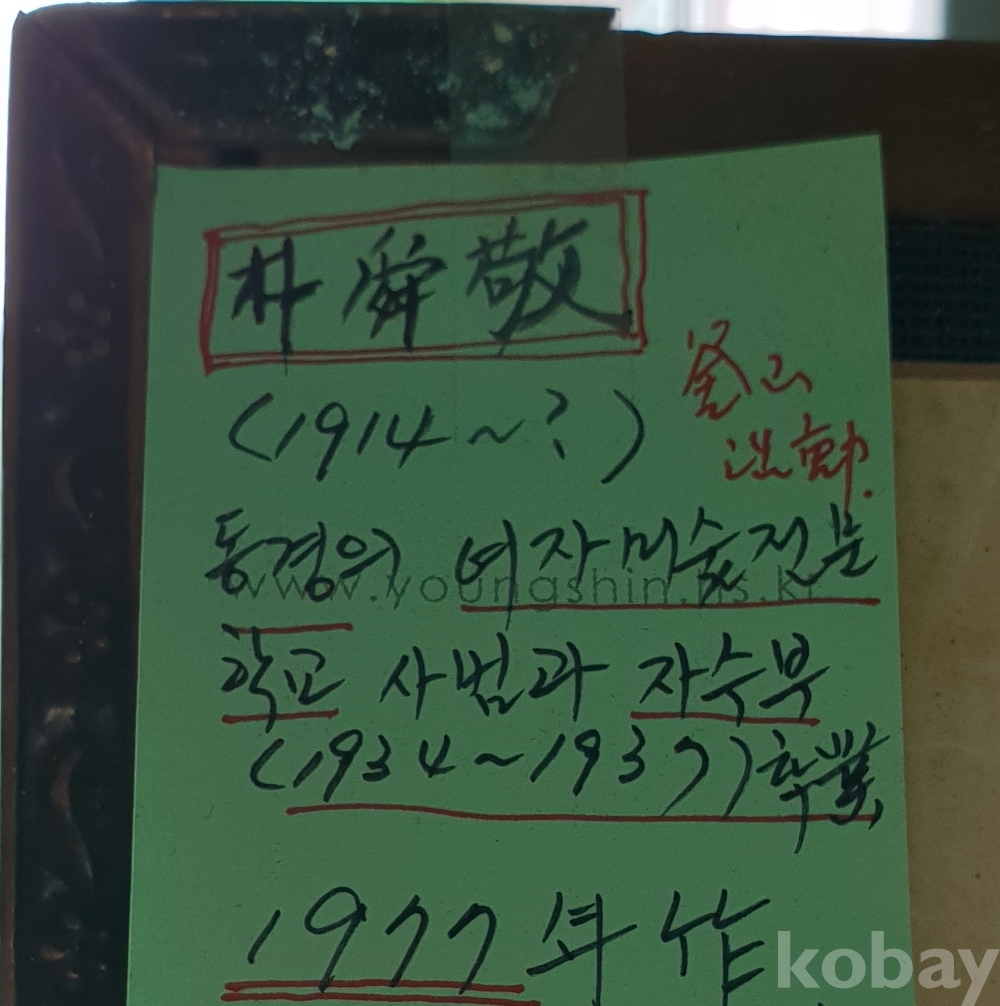 朴舜敬
(1914~?)
釜山
동경의 여자미술전문
www.youngshin.hs.kr
학교 사범과 자수부
(1934~1937)卒業
1977年作
kobay